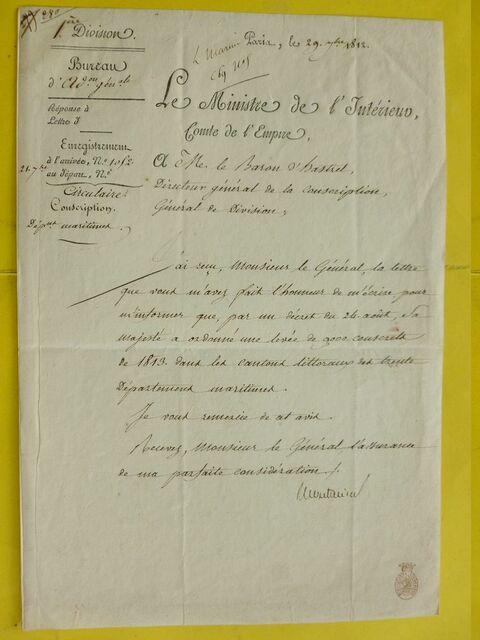 1ère Division.
Bureau
d'Adon génale
Réponse à
Lettre
Enregistrement
à l'arrivée, No
au départ, No
Circulaire
Conscription.
Dépnt maritimes.
Paris, le 29 7bre 1812.
Le Ministre de l'Intérieur,
Comte de l'Empire,
A M. le Baron d'Hastrel,
Directeur général de la conscription,
Général de Division,
J'ai reçu, Monsieur le Général, la lettre
que vous m'avez fait l'honneur de m'écrire pour
m'informer que, par un décret du 24 août, Sa
majesté a ordonné une levée de 9000 conscrits
de 1813 dans les cantons littoraux des trente
Département maritimes.
Je vous remercie de cet avis.
Recevez, Monsieur le Général l'assurance
de ma parfaite considération.
Montalivet